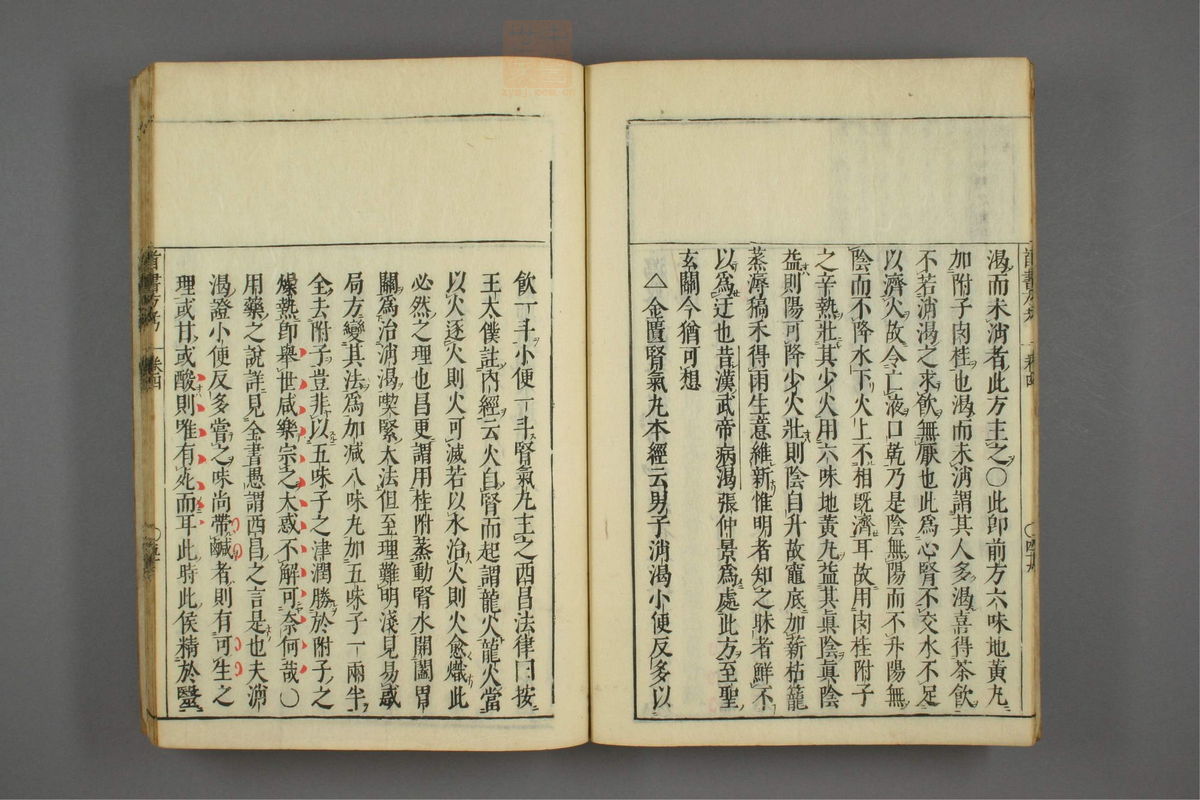 渴而未消者此方主之〇此卽前方六味地黃丸
加附子肉桂也渴而未消謂其人多渴喜得茶飲
不若消渴之求飲無厭也此爲心腎不交水不足
以濟火故令亡液口乾乃是陰無陽而不升陽無
陰而不降水下火上不相既濟耳故用肉桂附子
之辛熱壯其少火用六味地黃丸益其眞陰眞陰
益則陽可降少火壯則陰自升故竈底加薪枯籠
蒸溽槁禾得雨生意維新惟明者知之昧者鮮不
以爲迂也昔漢武帝病渴張仲景爲處此方至聖
玄關今猶可想
△金匱腎氣丸本經云男子消渴小便反多以
飲一斗小便一斗腎氣丸主之西昌法律曰按
王太僕註內經云火自腎而起謂龍火龍火當
以火逐火則火可滅若以水治火則火愈熾此
必然之理也昌更謂用桂附蒸動腎水開闔胃
關爲治消渴喫緊大法但至理難明淺見易惑
局方變其法爲加減八味丸加五味子一兩半
全去附子豈非以五味子之津潤勝於附子之
燥熱卽舉世咸樂宗之大惑不解可奈何哉〇
用藥之說詳見全書愚謂西昌之言是也夫消
渴證小便反多嘗之味尚帶鹹者則有可生之
理或甘或酸則唯有死而耳此時此候精於醫